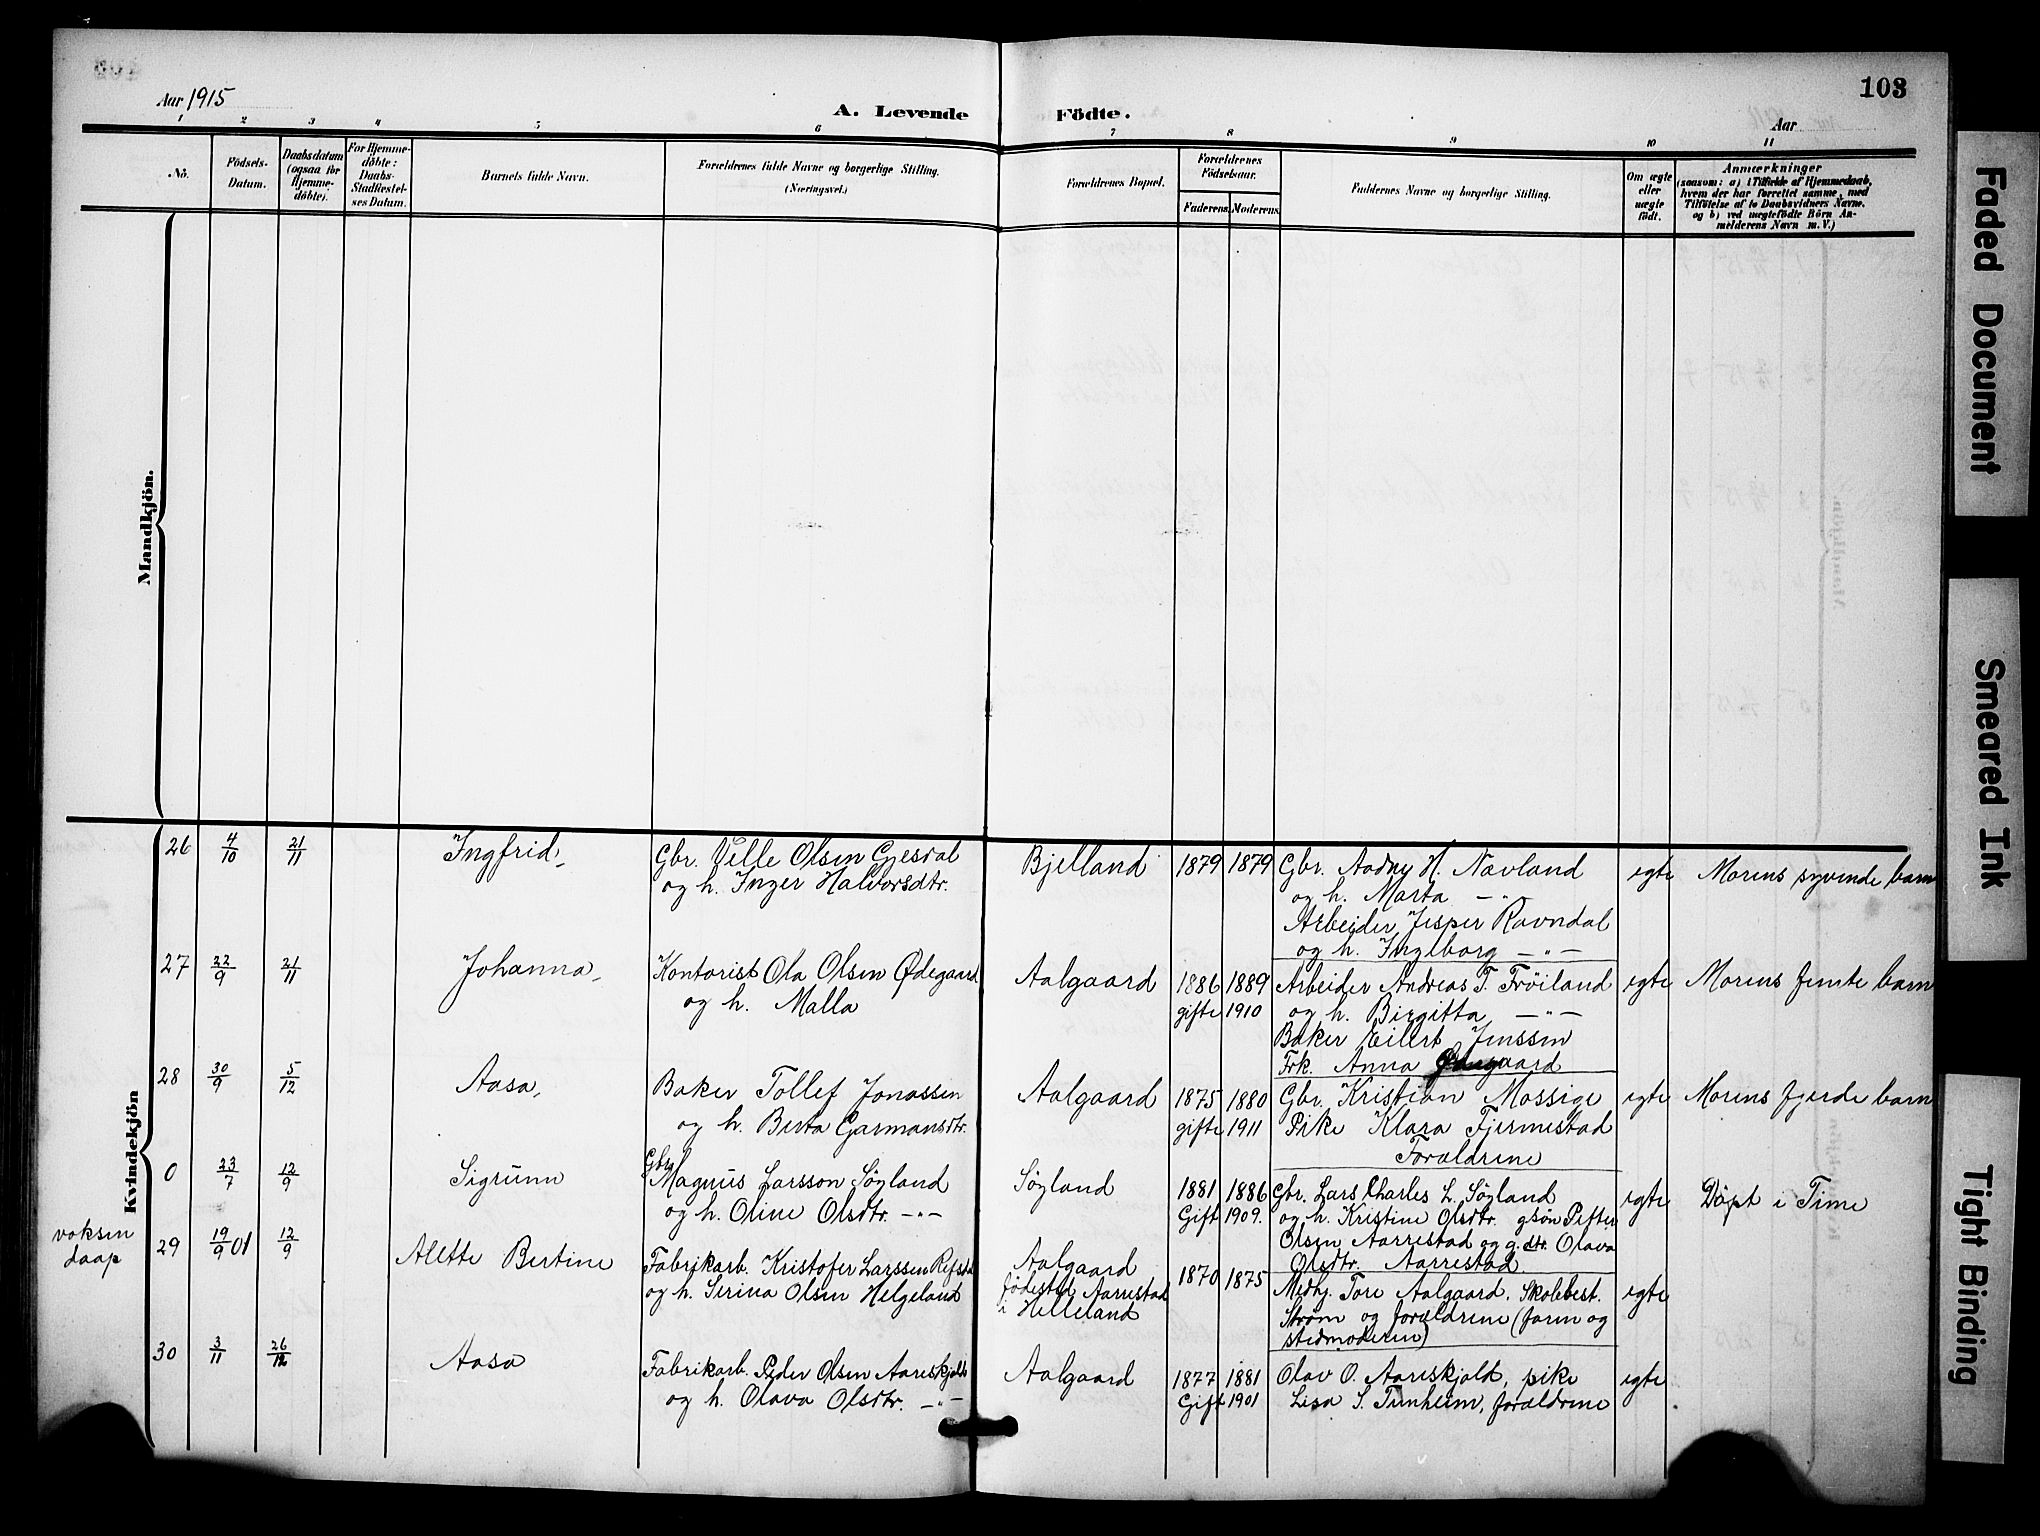 103
Aar 1915
A. Levende Födte.
Aar
1 2 3 4 5 6 7 8 9 10 11
No.
Födsels-
Datum.
Daabsdatum
(ogsaa for
Hjemme-
döbte).
For Hjemme-
döbte:
Daabs-
Stadfæstel-
ses Datum.
Barnets fulde Navn.
Forældrenes fulde Navne og borgerlige Stilling.
(Næringsvei.)
Forældrenes Bopæl.
Forældrenes
Födselsaar.
Faderens. Moderens.
Faddernes Navne og borgerlige Stilling.
Om ægte
eller
uægte
født.
Anmærkninger
(saasom: a) i Tilfælde af Hjemmedaab,
hvem der har forrettet samme, med
Tilföielse af to Daabsvidners Navne.
og b) ved uægtefödte Börn An-
melderens Navn m. V.)
Mandkjön.
Kvindekjön
26 4/10 21/11 Ingfrid,
Gbr. Velle Olsen Gjesdal
og h. Inger Halvorsdtr.
Bjelland 1879 1879
Gbr. Aadny H. Navland
og h. Marta —"—
Arbeider Jesper Ravndal
og h. Ingeborg —"—
egte Morens syvende barn
27 22/9 21/11 Johanna,
Kontorist Ola Olsen Ødegaard
og h. Malla
Aalgaard 1886 1889
gifte 1910
Arbeider Andreas T. Frøiland
og h. Birgitta —"—
Baker Eilert Jenssen
Frk. Anna
egte Morens femte barn
28 30/9 5/12 Aasa,
Baker Tollef Jonassen
og h. Berta Garmansdtr.
Aalgaard 1875 1880
gifte 1911
Gbr. Kristian Mossige
Pike Klara Fjermestad
Forældrene
egte Morens fjerde barn
0 23/7 12/9 Sigrunn
Gbr.
Magnus Larsson Søyland
og h. Oline Olsdtr. —"—
Søyland 1881 1886
Gift 1909.
Gbr. Lars Charles L. Søyland
og h. Kristine Olsdtr. gsøn Petter
Olsen Aarrestad og g.dtr. Olava
Olsdtr. Aarrestad.
egte Døpt i Time
voksen
daap
29 19/9 01 12/9 Alette Bertine
Fabrikarb. Kristofer Larssen Refsdal
og h. Serina Olsen Helgeland
Aalgaard
fødested Aarrestad
i Helleland
1870 1875
Medhj. Tore Aalgaard, Skolebest.
Strøm og forældrene (faren og
stedmoderen)
egte
30 3/11 26/12 Aasa
Fabrikarb. Peder Olsen Aareskjold
og h. Olava Olsdtr. —"—
Aalgaard 1877 1881
Gift 1901
Olav O. Aareskjold, pike
Lisa S. Tunheim, forældrene
egte
Faded Document
Smeared Ink
Tight Binding